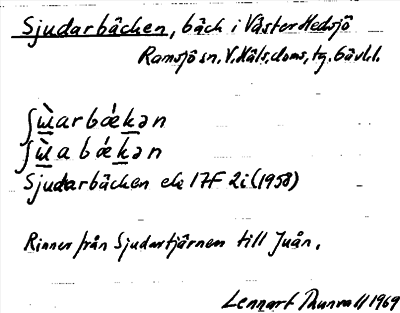 Sjudarbäcken, bäck i Väster Hedsjö
Ramsjö sn, V. Häls. doms. tg. Gävl. l.
ʃɯ̀arbǿkən
ʃɯ̀a bǿkən
Sjudarbäcken ek 17F 2i (1958)
Rinner från Sjudartjärnen till Juån.
Lennart 1969